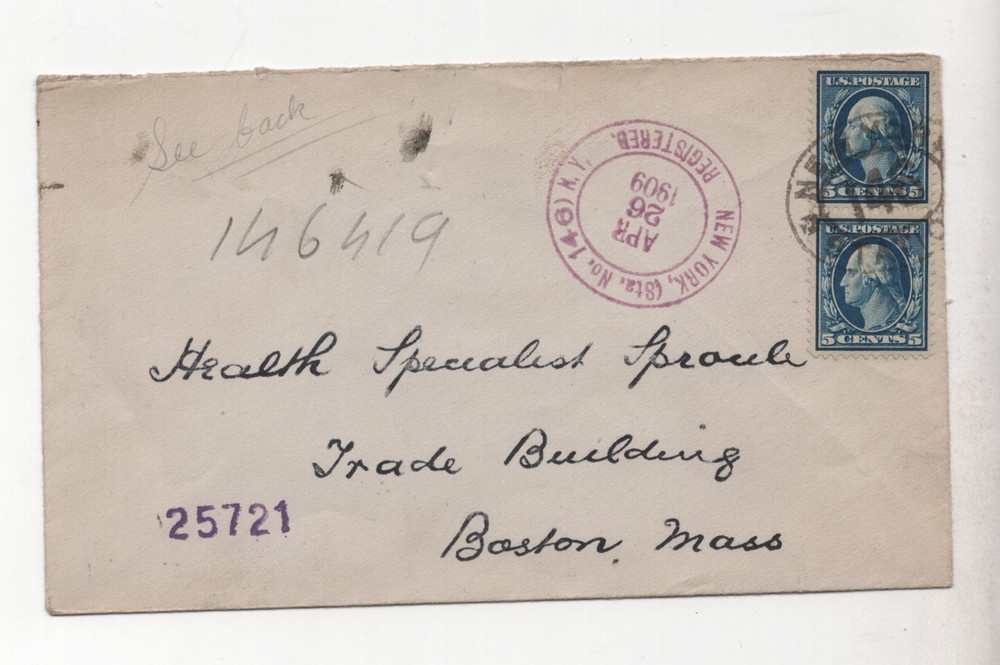 See back
146419
U.S. POSTAGE
5 CENTS 5
5 CENTS 5
NEW YORK, (Sta. No. 146) N.Y.
REGISTERED.
APR
26
1909
Health Specialist Sproule
Trade Building
Boston, Mass
25721